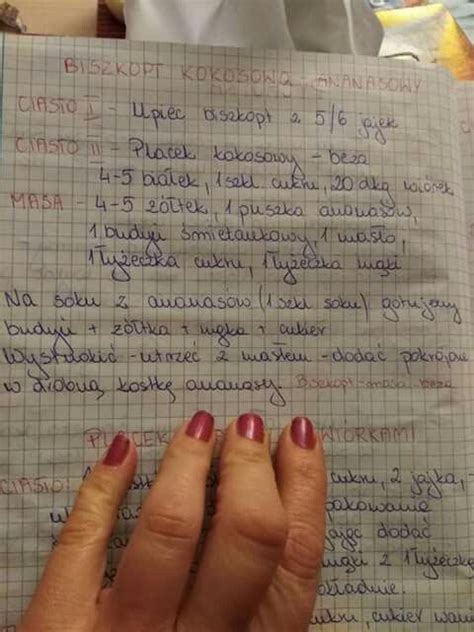 BISZKOPT KOKOSOWO-ANANASOWY
CIASTO I - Upiec biszkopt z 5/6 jajek
CIASTO II - Placek kokosowy - beza
4-5 białek, 1 szkl. cukru, 20 dkg wiórek
MASA - 4-5 żółtek, 1 puszka ananasów,
1 budyń śmietankowy, 1 masło,
1 łyżeczka cukru, 1 łyżeczka mąki
Na soku z ananasów (1 szkl soku) gotujemy
budyń + żółtka + mąka + cukier
Wystudzić - utrzeć z masłem - dodać pokrojone
w drobną kostkę ananasy. Biszkopt-masa-beza
PLACEK WIÓRKAMI
CIASTO: 1 cukru, 2 jajka,
pakowania
dodać
mąki 2 1 łyżeczkę
cukru, cukier